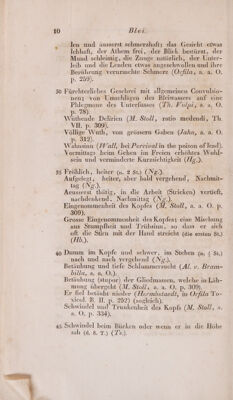 10 Blei.
len und ausserst schmerzhaft; das Gesicht etwas
lebhaft, der Athem frei, der Blick bestürzt, der
Mund schleimig, die Zunge natürlich, der Unter-
leib und die Lenden etwas angeschwollen und ihre
Berührung verursachte Schmerz (Orfila, a. a. O.
p. 259).
30 Fürchterliches Geschrei mit allgemeinen Convulsio-
nen; vom Umschlagen des Bleiwassers auf eine
Phlegmone des Unterfusses (Th. Volpi, a. a. O.
p. 78).
Wüthende Delirien (M. Stoll, ratio medendi, Th
VII. p. 309).
Völlige Wuth, von grössern Gaben (Jahn, a. a. O.
p. 312).
Wahnsinn (Wall, bei Percival in the poison of lead).
Vormittags beim Gehen im Freien erhöhtes Wohl-
sein und verminderte Kurzsichtigkeit (Hg.).
35 Fröhlich, heiter (n. 2 St.) (Ng.).
Aufgelegt, heiter, aber bald vergehend, Nachmit-
tag (Ng.).
Aeusserst thätig, in die Arbeit (Stricken) vertieft,
nachdenkend, Nachmittag (Ng.).
Eingenommenheit des Kopfes (M. Stoll, a. a. O. p.
309).
Grosse Eingenommenheit des Kopfes; eine Mischung
aus Stumpfheit und Trübsinn, so dass er sich
oft die Stirn mit der Hand streicht (die ersten St.)
(Hb.).
40 Dumm im Kopfe und schwer, im Stehen (n. ¼ St.)
nach und nach vergehend (Ng.).
Betäubung und tiefe Schlummersucht (Al. v. Bram-
billa, a. a. O.).
Betäubung (stupor) der Gliedmassen, welche in Läh-
mung übergeht (M. Stoll, a. a. O. p. 309).
Er fiel betäubt nieder (Hermbstaedt, in Orfila To-
xicol. B. II. p. 292) (sogleich).
Schwindel und Trunkenheit des Kopfs (M. Stoll, a.
a. O. p. 334).
45 Schwindel beim Bücken oder wenn er in die Höhe
sah (d. 8. T.) (Tr.).